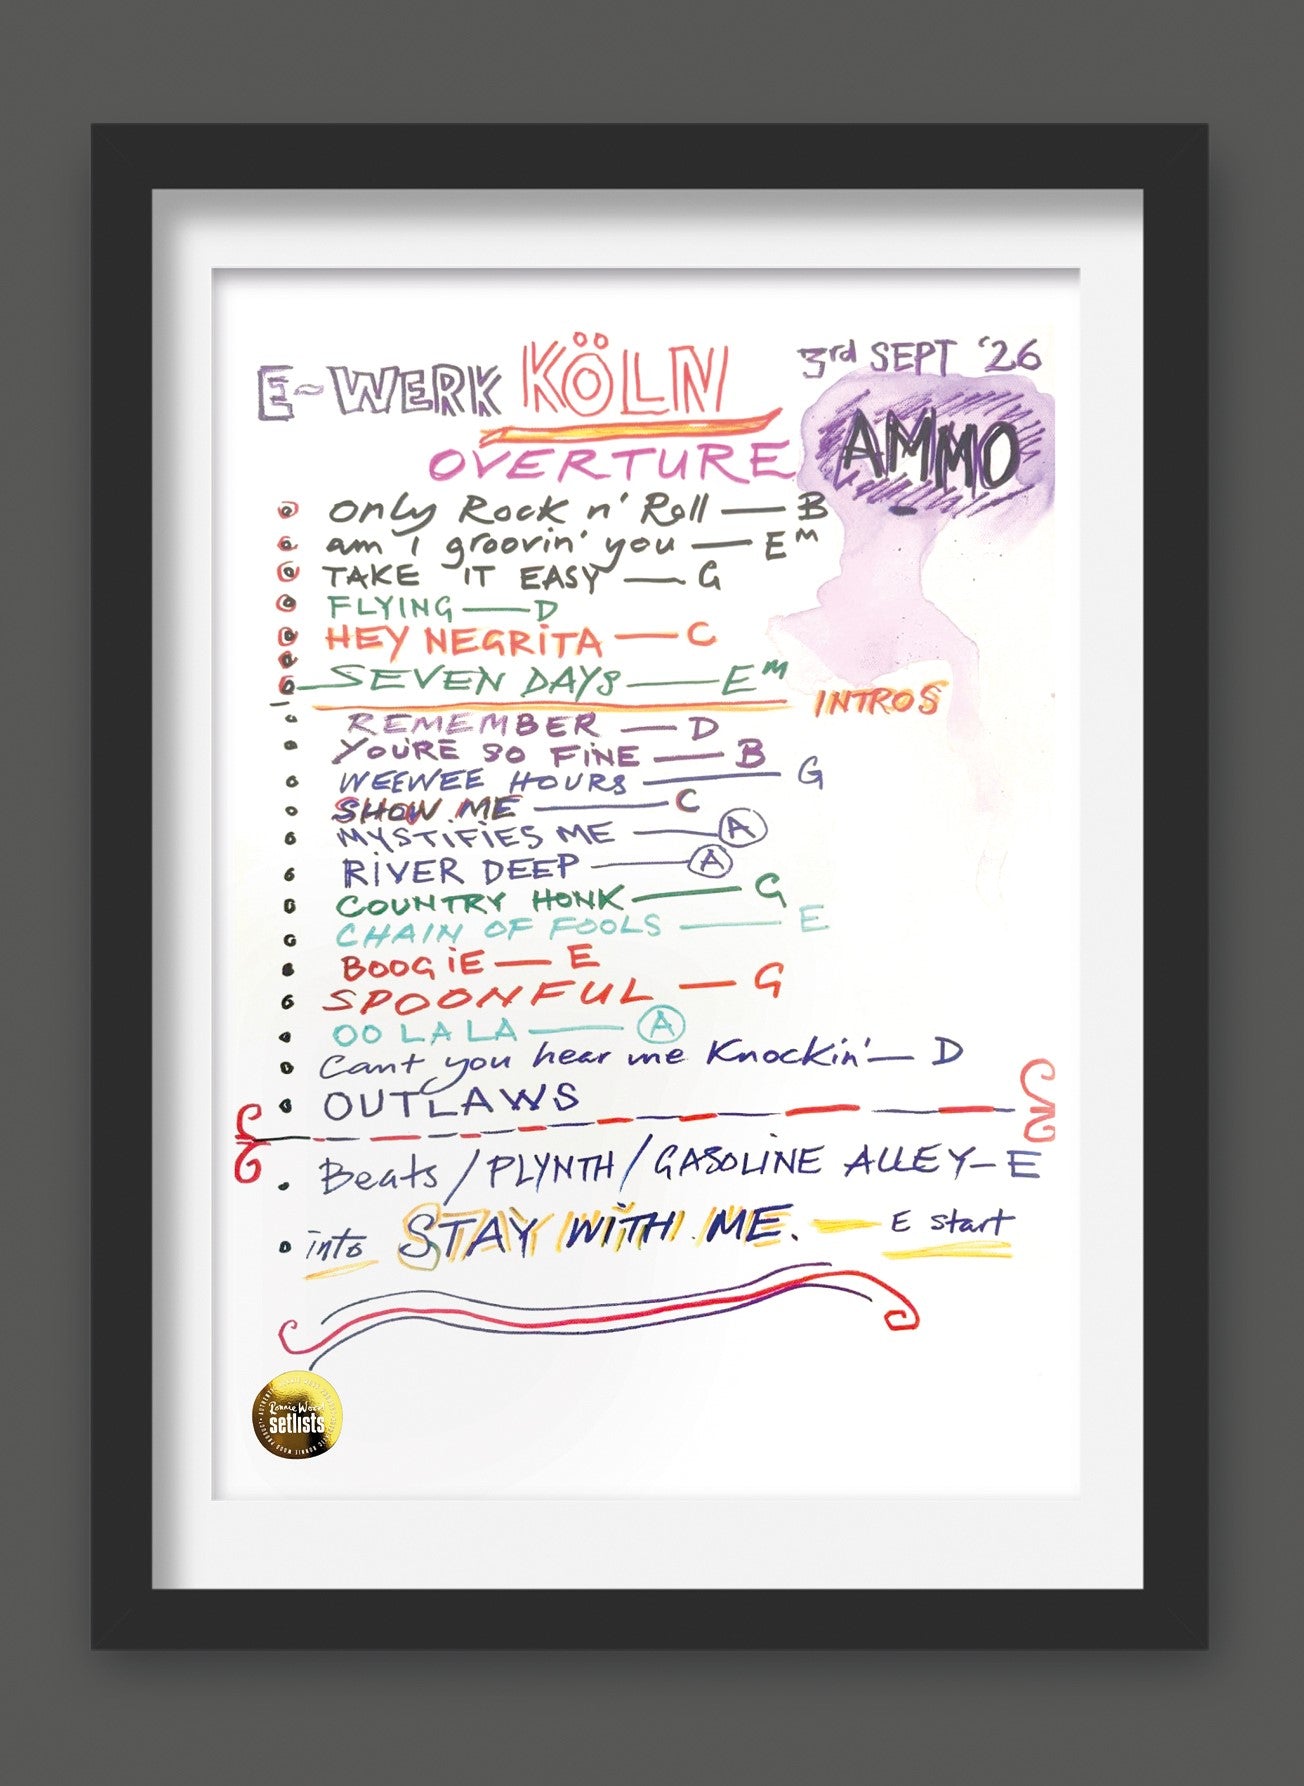 E~WERK KÖLN 3rd SEPT '26
AMMO
OVERTURE
Only Rock n' Roll — B
am I groovin' you — Em
TAKE IT EASY — G
FLYING — D
HEY NEGRITA — C
SEVEN DAYS — Em
INTROS
REMEMBER — D
YOU'RE SO FINE — B
WEEWEE HOURS — G
SHOW ME — C
MYSTIFIES ME — A
RIVER DEEP — A
COUNTRY HONK — G
CHAIN OF FOOLS — E
BOOGIE — E
SPOONFUL — G
OO LA LA — A
Cant you hear me Knockin' — D
OUTLAWS
Beats / PLYNTH / GASOLINE ALLEY — E
into STAY WITH ME. — E start
Ronnie Wood
setlists